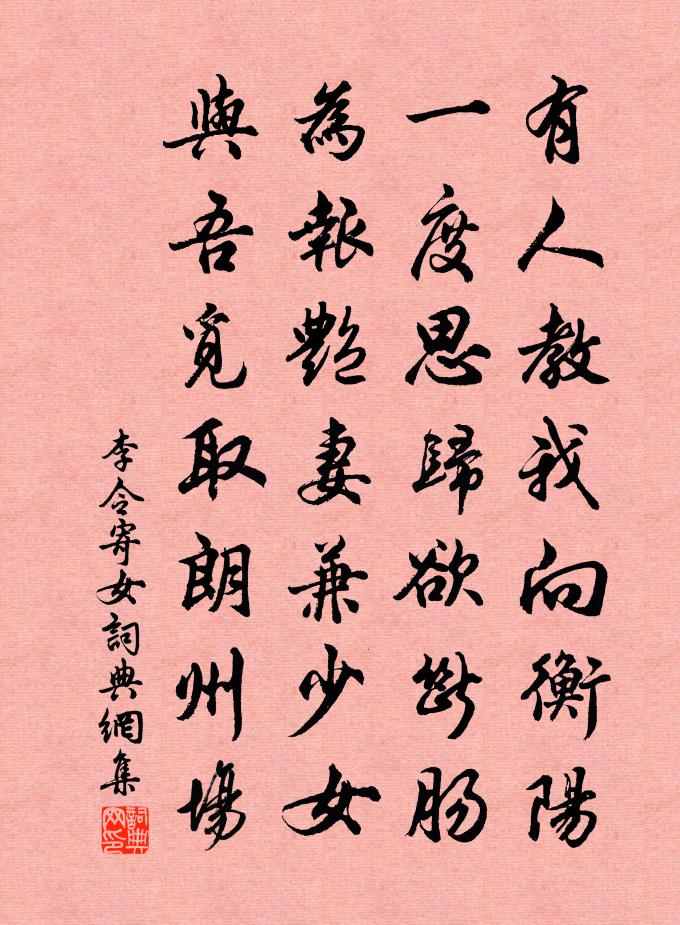 有人教我向衡陽
一度思歸欲斷腸
為報艷妻兼少女
與吾覓取朗州場
李令寄女詞典網集
詞典網印